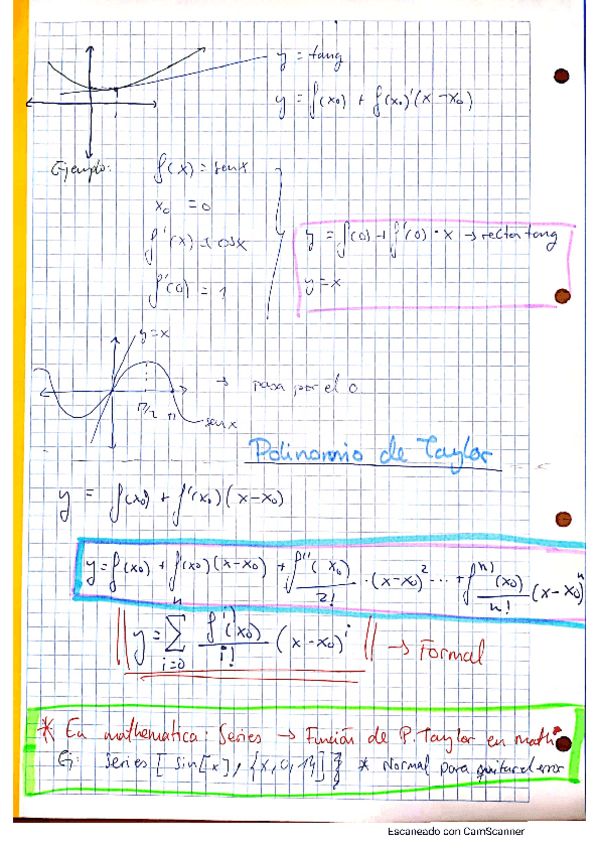 y = tang
y = f(x₀) + f(x₀)'(x-x₀)
Ejemplo:
f(x) = senx
x₀ = 0
f'(x) = cosx
f'(0) = 1
y = f(0) + f'(0) · x → recta tang
y = x
y = x
π/2 π
senx
→ pasa por el 0
Polinomio de Taylor
y = f(x₀) + f'(x₀)(x-x₀)
y = f(x₀) + f(x₀)(x-x₀) + f''(x₀)/2! · (x-x₀)² ... + f^n)(x₀)/n! (x-x₀)^n
y = ∑_{i=0}^{n} f^i)(x₀)/i! (x-x₀)^i → Formal
* En mathematica: Series → Función de P. Taylor en math
Ej: Series [ Sin[x], {x, 0, 14} ] * Normal para quitar el error
Escaneado con CamScanner